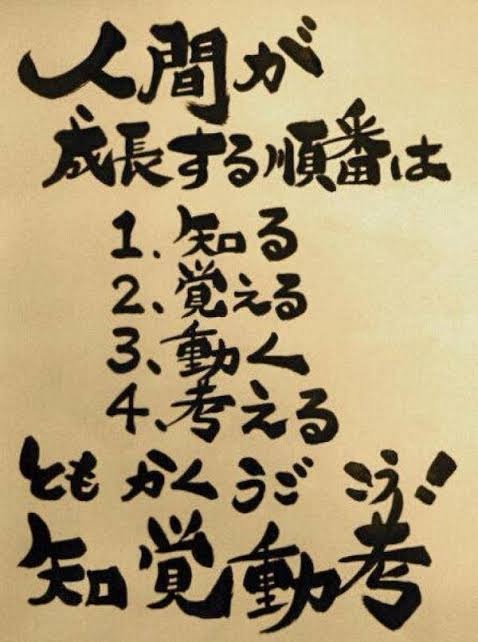 人間が
成長する順番は
1、知る
2、覚える
3、動く
4、考える
ともかくうごこう!!
知覚動考